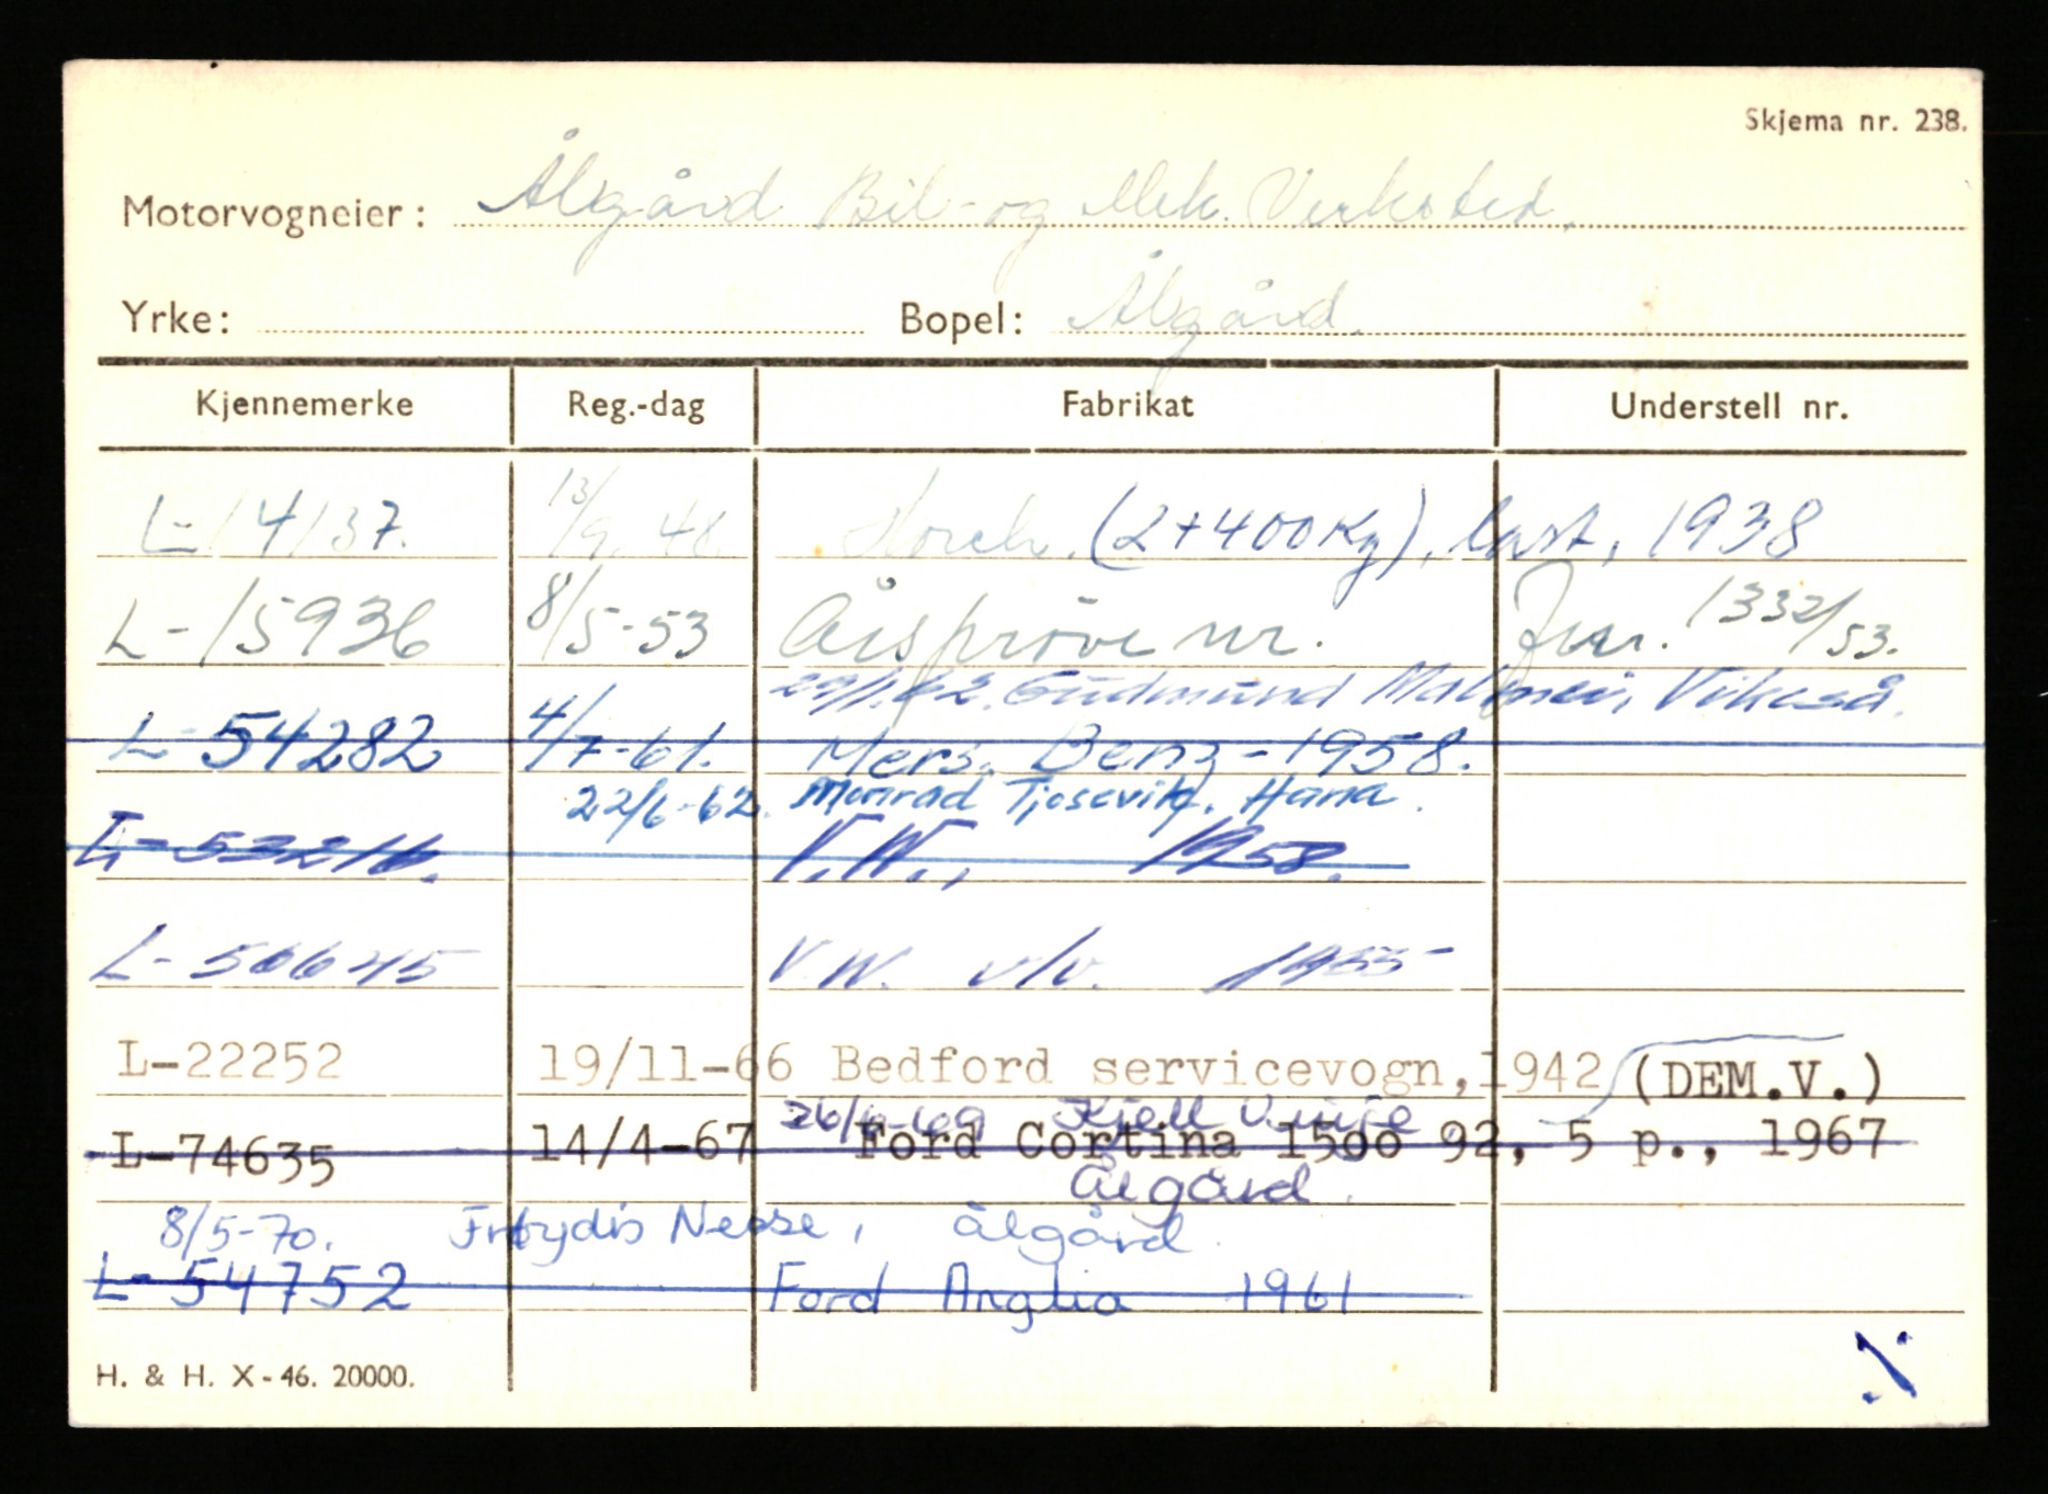 Skjema nr. 238.
Motorvogneier: Ålgård Bil- og Mek. Verksted.
Yrke: Bopel: Ålgård.
Kjennemerke Reg.-dag Fabrikat Understell nr.
L-14137. 13/9.48. Horch. (2+400 Kg), last, 1938
L-15936 8/5-53 Årsprøve nr. Jnr. 1332/53.
29/1.62. Gudmund Malmei, Vikeså.
L-54282 4/7-61. Mers. Benz - 1958.
22/6-62. Monrad Tjosevik, Hana.
L-53216. V.W., 1958.
L-50645 V.W. v/v. 1955
L-22252 19/11-66 Bedford servicevogn, 1942 (DEM.V.)
26/6-69 Kjell
L-74635 14/4-67 Ford Cortina 1500 92, 5 p., 1967
Ålgård.
8/5-70. Frøydis Nesse, Ålgård.
L-54752 Ford Anglia 1961
H. & H. X-46. 20000.